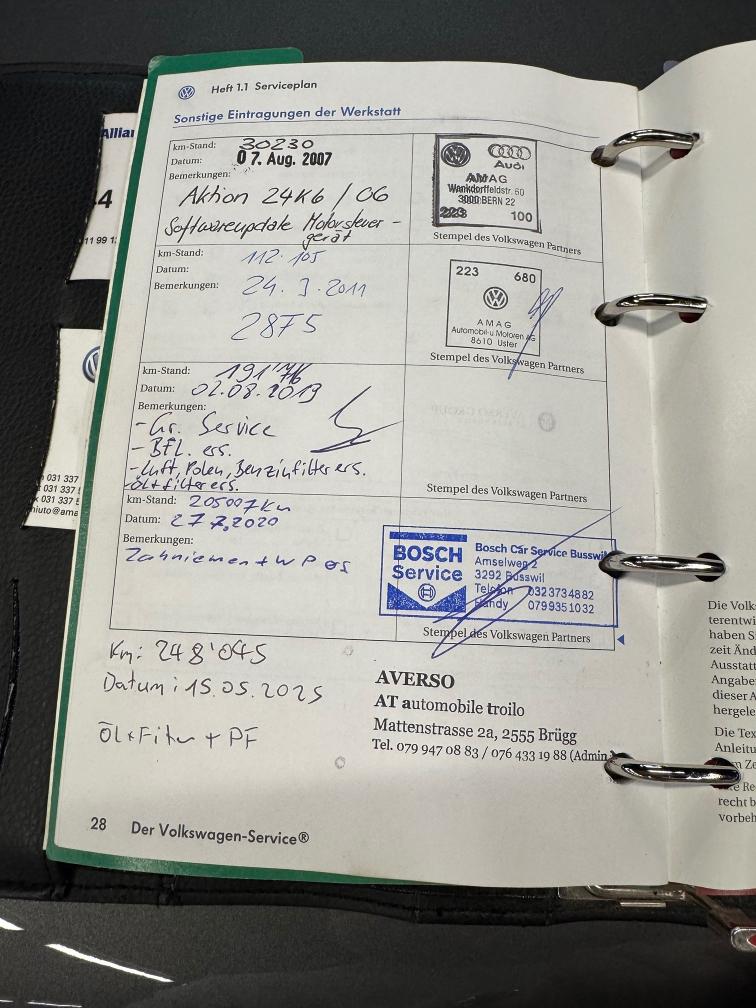 Heft 1.1 Serviceplan
Sonstige Eintragungen der Werkstatt
km-Stand: 30230
Datum: 07. Aug. 2007
Bemerkungen:
Aktion 24K6 / 06
Softwareupdate Motorsteuer-
gerät
Audi
AMAG
Wankdorffeldstr. 60
3000 BERN 22
223 100
Stempel des Volkswagen Partners
km-Stand: 112.105
Datum:
Bemerkungen: 24.3.2011
28F5
223 680
AMAG
Automobil-u. Motoren AG
8610 Uster
Stempel des Volkswagen Partners
km-Stand: 191'
Datum: 02.08.2013
Bemerkungen:
- Gr. Service
- BFL. ers.
- Luft, Polen, Benzinfilter ers.
- Ölfilter ers.
Stempel des Volkswagen Partners
km-Stand: 205007 Km
Datum: 27.7.2020
Bemerkungen:
Zahnriemen + WP
BOSCH
Service
Bosch Car Service Busswil
Amselweg 2
3292 Busswil
Telefon 0323734882
Handy 0799351032
Stempel des Volkswagen Partners
Km: 248'045
Datum: 15.05.2025
Öl + Filter + PF
AVERSO
AT automobile troilo
Mattenstrasse 2a, 2555 Brügg
Tel. 079 947 08 83 / 076 433 19 88 (Admin.)
28 Der Volkswagen-Service®
Allian
4
11 99 1
031 337
031 337
031 337
Die Volk
terentwi
haben Si
zeit Änd
Ausstatt
Angabe
dieser A
hergele
Die Tex
Anleitu
m Ze
Re
recht b
vorbeh